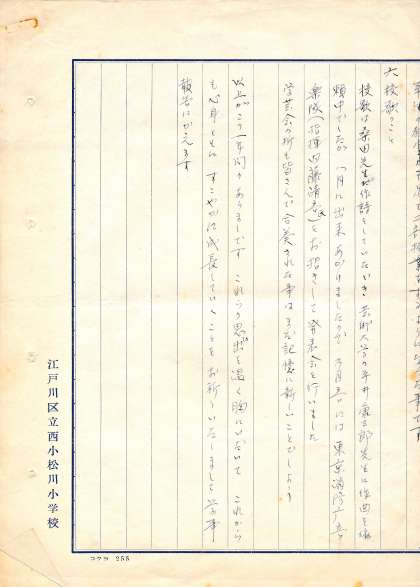 六 校歌のこと
校歌は桑田先生が作詩をしていただき 芸術大学の平井康三郎先生に作曲を依
頼中でしたが 一月に出来あがりましたので 三月 には 東京消防庁音
楽隊(指揮内藤清五)をお招きして発表会を行いました
学芸会の折も皆さんで合奏された事はまだ記憶に新しいことでしょう
以上がこの一年間のあらましです これらの思出を温く胸にいだいて これから
も心身ともに すこやかに成長していくことをお祈りいたしまして 学事
報告にかえます
江戸川区立西小松川小学校
コクヨ 255